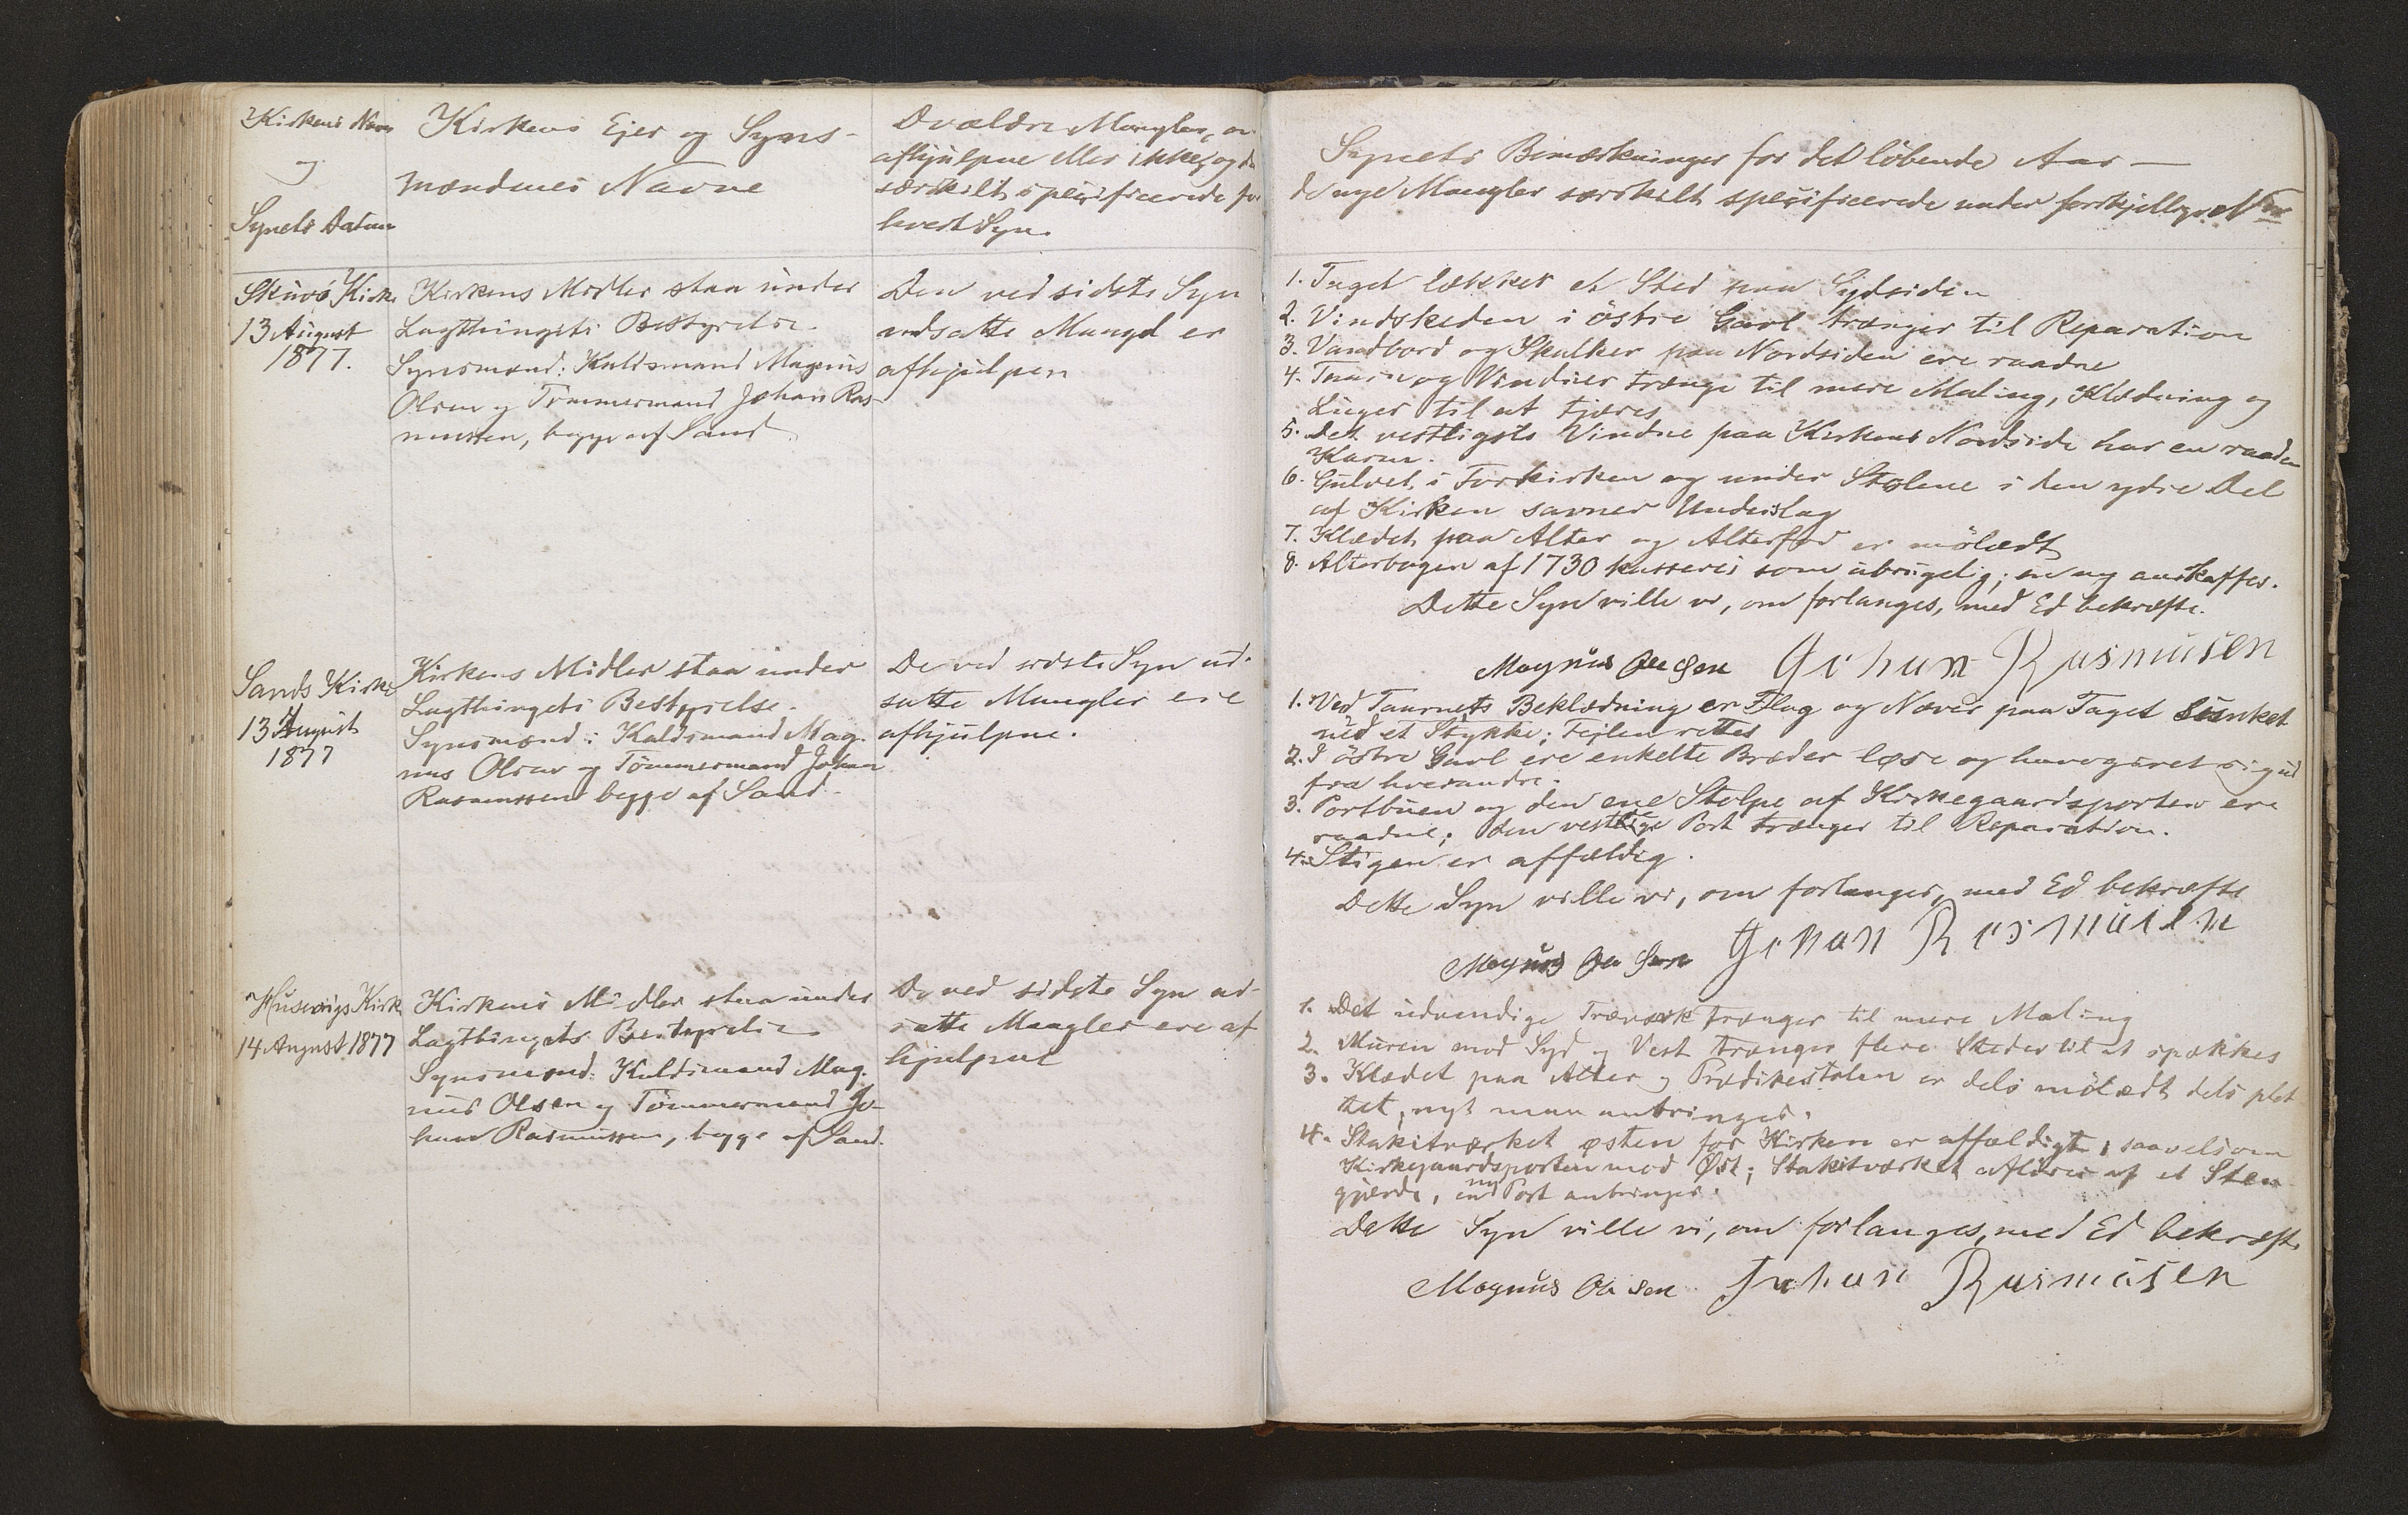 Kirkens Navn
og
Synets Datum
Kirkens Ejer og Syns-
mændenes Navne
De ældre Mangler, om
afhjulpne eller ikke, og de
særskilt specificerede for
hvert Syn.
Skuø Kirke
13 August
1877.
Kirkens Midler staa under
Lagthingets Bestyrelse.
Synsmænd: Kuldsmand Magnus
Olsen og Tømmermand Johan Ras-
mussen, begge af Sand.
Den ved sidste Syn
udsatte Mangel er
afhjulpen
Sands Kirke
13 August
1877
Kirkens Midler staa under
Lagthingets Bestyrelse.
Synsmænd: Kuldsmand Mag-
nus Olsen og Tømmermand Johan
Rasmussen begge af Sand.
De ved sidste Syn ud-
satte Mangler ere
afhjulpne.
Husevigs Kirke
14 August 1877
Kirkens Midler staa under
Lagthingets Bestyrelse
Synsmænd: Kuldsmand Mag-
nus Olsen og Tømmermand Jo-
han Rasmussen, begge af Sand.
De ved sidste Syn ud-
satte Mangler ere af
hjulpne
Synets Bemærkninger for det løbende Aar —
de nye Mangler særskilt specificerede under forskjellige Nre
1. Taget lækker et Sted paa Sydsiden
2. Vindskeden i østre Gavl trænger til Reparation
3. Vandbord og Skulker paa Nordsiden ere raadne
4. Taarn og Vinduer trænge til mere Maling, Klædning og
Luger til at tjæres
5. Det vestligste Vindue paa Kirkens Nordside har en raaden
Karm.
6. Gulvet i Forkirken og under Stolene i den ydre Del
af Kirken savner Underslag
7. Klædet paa Alter og Alterfod er mølædt
8. Alterbogen af 1730 kasseres som ubrugelig; en ny anskaffes.
Dette Syn ville vi, om forlanges, med Ed bekræfte.
Magnus Olesen Johan Rasmusen
1. Ved Taarnets Beklædning er Flag og Næver paa Taget sunket
ned et Stykke; Fejlen rettes
2. I østre Gavl ere enkelte Bræder løse og have givet sig ud
fra hverandre.
3. Portbuen og den ene Stolpe af Kirkegaardsporten ere
raadne; den vestlige Port trænger til Reparation.
4. Stigen er affældig.
Dette Syn ville vi, om forlanges, med Ed bekræfte
Magnus Olesen Johan Rasmusen
1. Det udvendige Træværk trænger til mere Maling
2. Muren mod Syd og Vest trænger flere Steder til at spækkes
3. Klædet paa Alter og Prædikestolen er dels mølædt dels plet
tet, nyt maa anbringes.
4. Stakitværket østen for Kirken er affældigt, saavelsom
Kirkegaardsporten mod Øst; Stakitværket afløses af et Sten
gjærde, en ny Port anbringes.
Dette Syn ville vi, om forlanges, med Ed bekræfte
Magnus Olesen Johan Rasmusen